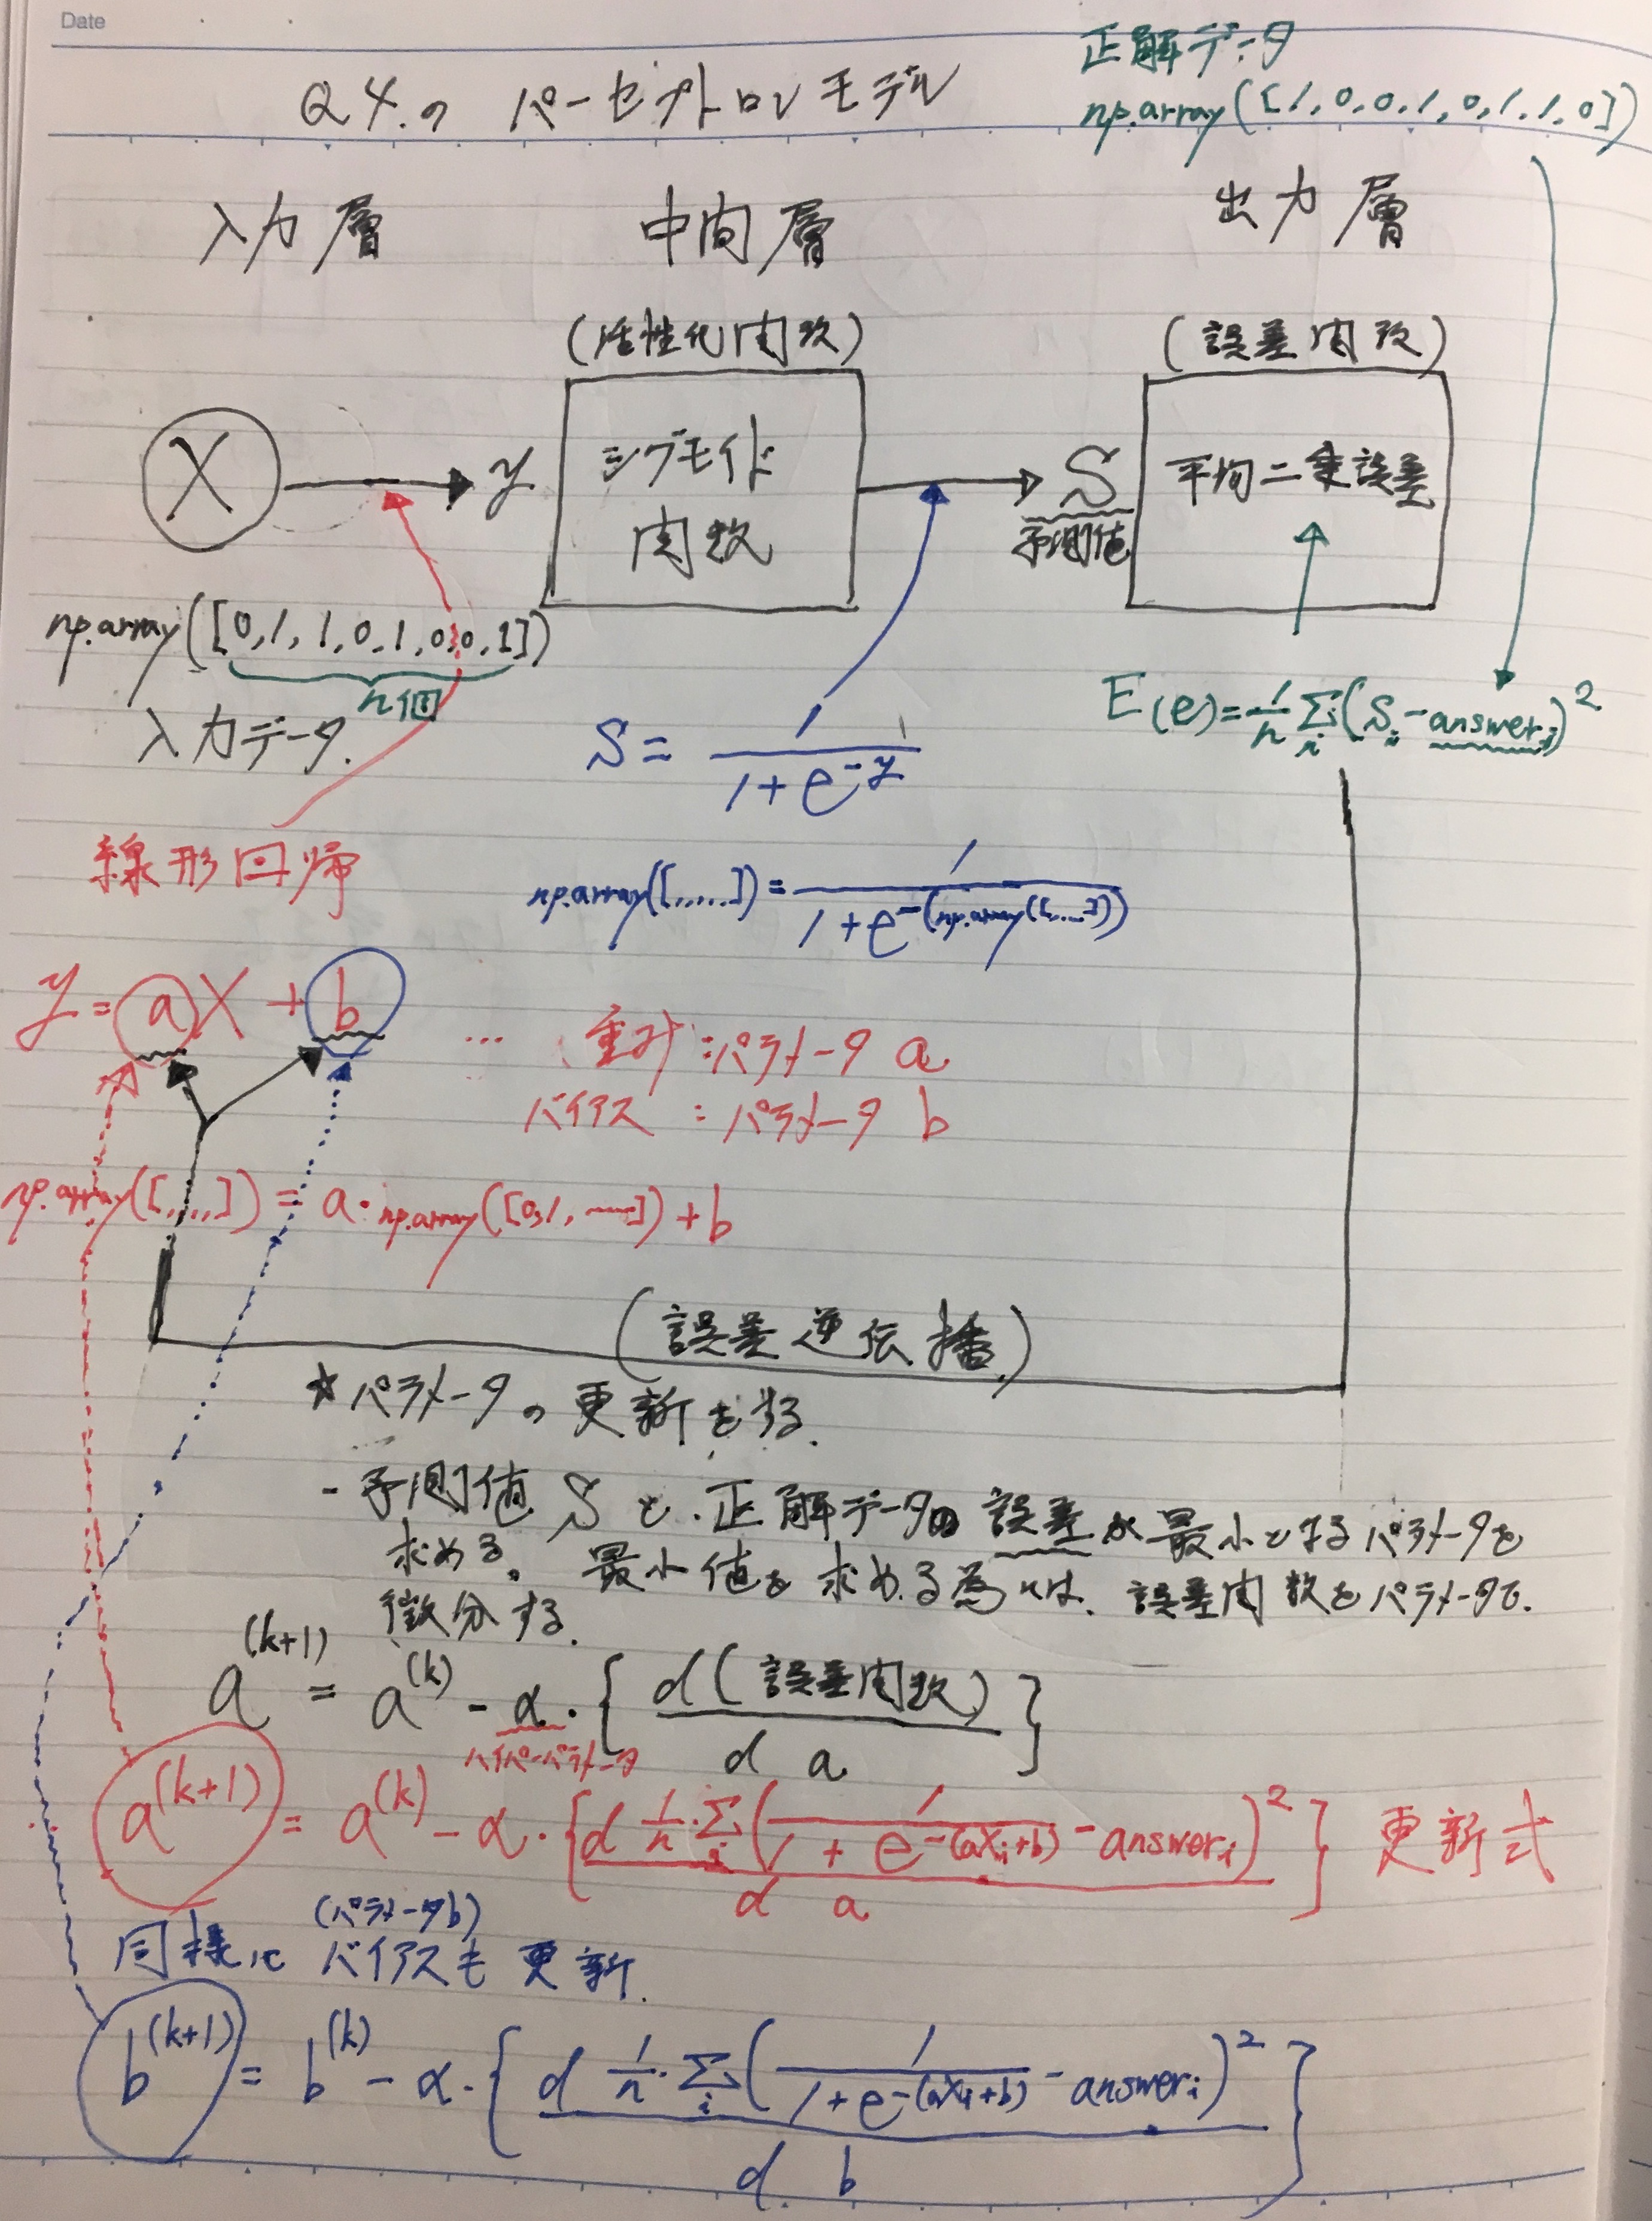 Date
正解データ
Q4.の パーセプトロンモデル
np.array([1,0,0,1,0,1,1,0])
入力層 中間層 出力層
(活性化関数) (誤差関数)
X y シグモイド関数 S 平均二乗誤差
予測値
np.array([0,1,1,0,1,0,0,1])
n個
入力データ.
E(e)=1/n Σi(Si-answeri)²
S = 1/(1+e^-y)
線形回帰
np.array([,,,,,])=1/(1+e^-(np.array([,...])))
y=aX+b ... 重み:パラメータ a
バイアス : パラメータ b
np.array([,,,,])=a・np.array([0,1,〰])+b
(誤差逆伝播)
☆パラメータの更新をする.
-予測値Sと.正解データの誤差が最小とするパラメータを
求める。最小値を求める為には、誤差関数をパラメータで.
微分する.
a^(k+1) = a^(k) - α・{d(誤差関数)/d a}
ハイパーパラメータ
a^(k+1) = a^(k) - α・{d 1/n・Σi(1/(1+e^-(aXi+b)) - answeri)²/d a} 更新式
(パラメータb)
同様に バイアスも更新.
b^(k+1) = b^(k) - α・{d 1/n・Σi(1/(1+e^-(aXi+b)) - answeri)²/d. b}